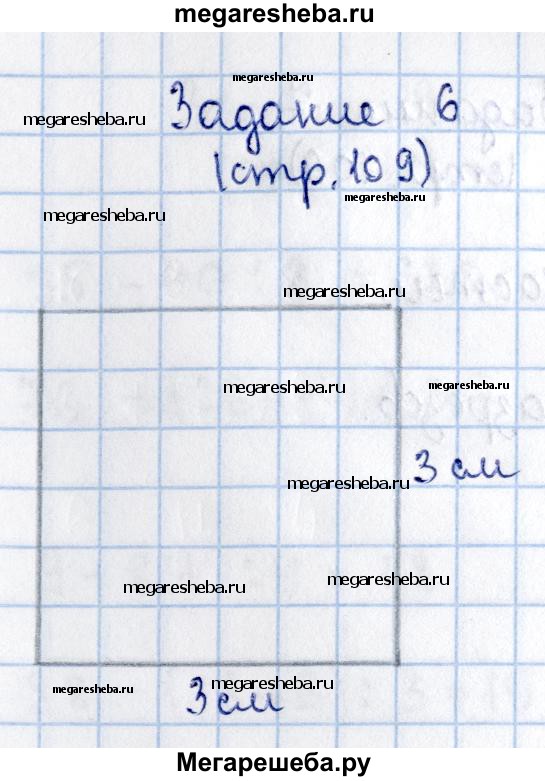 megaresheba.ru
megaresheba.ru
megaresheba.ru
Задание 6
(стр. 109)
megaresheba.ru
megaresheba.ru
megaresheba.ru
megaresheba.ru
megaresheba.ru
3 см
megaresheba.ru
megaresheba.ru
megaresheba.ru
megaresheba.ru
megaresheba.ru
3 см
Мегарешеба.ру